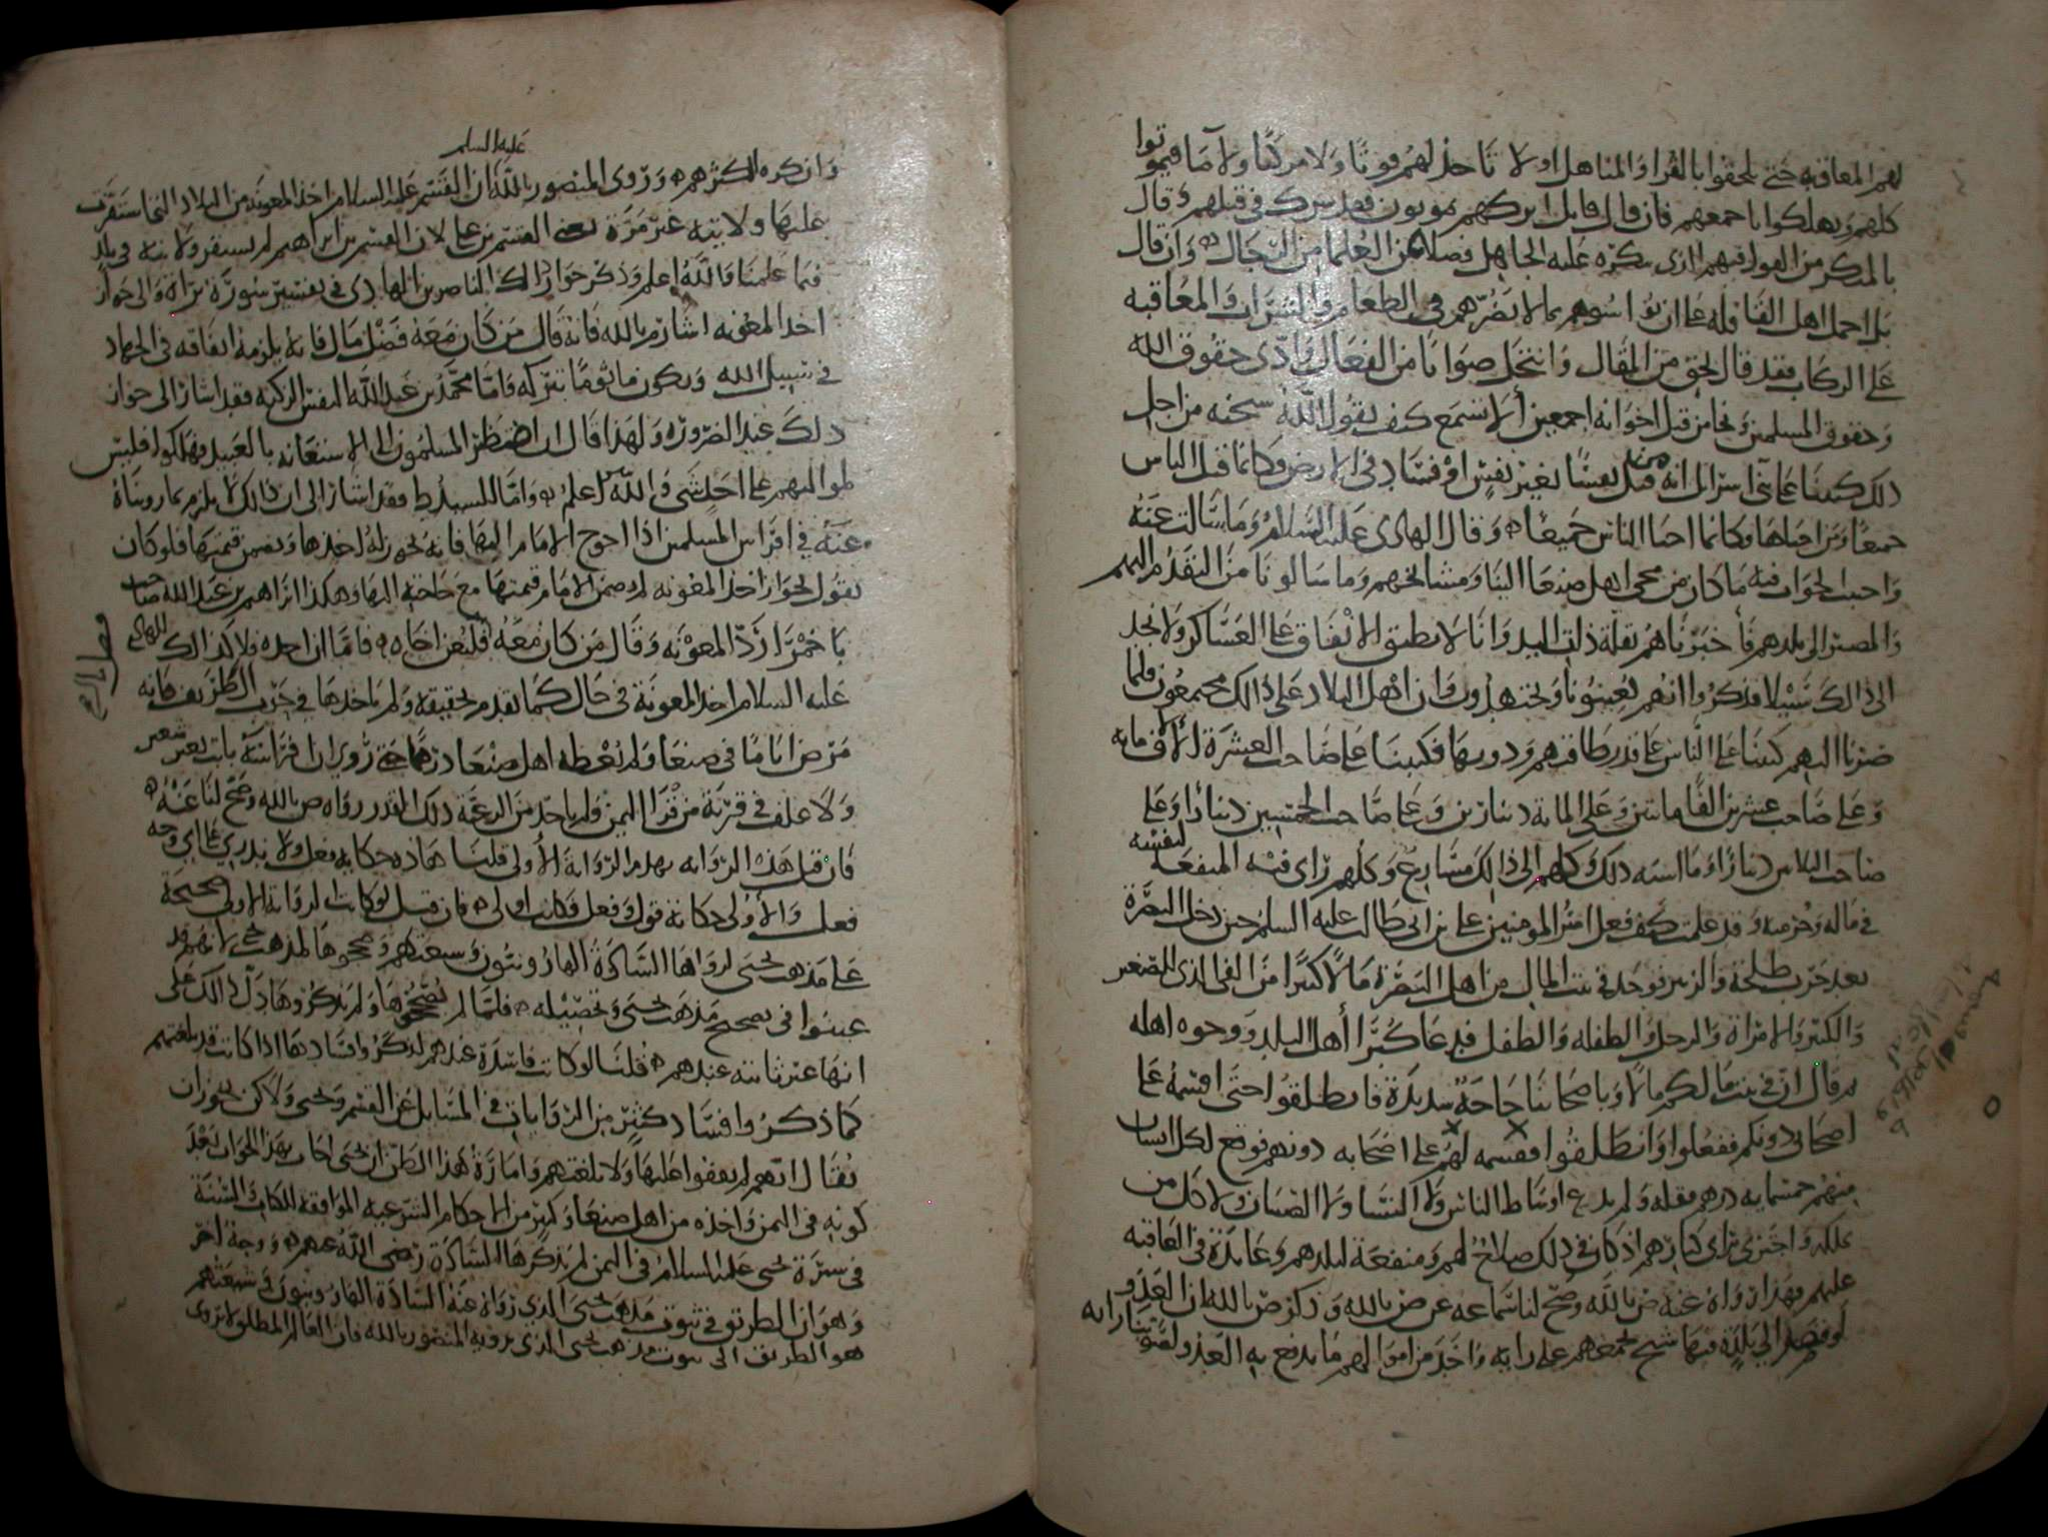 لهم المعاقبه حتى يلحقوا بالقرا والمناهل اولا تاخذ لهم قوتا ولا مركبا ولا ما فيموتوا
كلهم ويهلكوا باجمعهم فان قال قايل ايتركهم يموتون فقد شرك في قتلهم قال
بالمنكر من القول فيهم الذى يكره عليه الجاهل فضلا عن العلما من الرجال وان قال
بل احمل اهل القافله على ان يواسوهم بما لا يضرهم في الطعام والشراب والمعاقبه
على الركاب فقد قال بالحق من المقال وانتحل صوابا من الفعال وادى حقوق الله
وحقوق المسلمين ونجا من قتل اخوانه اجمعين ألا تسمع كيف يقول الله سبحنه من اجل
ذلك كتبنا على بنى اسرائل انه من قتل نفسا بغير نفس او فساد في الارض فكانما قتل الناس
جميعا ومن احياها فكانما احيا الناس جميعا وقال الهادى عليه السلام وما سالت عنه
واحببت الجواب فيه ما كان من مجى اهل صنعا الينا ومشائخهم وما سالونا من التقدم اليهم
والمصير الى بلدهم فأخبرناهم بقلة ذات اليد وانا لا نطيق الانفاق على العساكر ولا نجد
الى ذالك سبيلا فذكروا انهم يعينونا ويجتهدون وان اهل البلاد على ذالك مجمعون فلما
صرنا اليهم كتبنا على الناس على قدر طاقتهم ودونها فكتبنا على صاحب العشرة الآف مايه
وعلى صاحب عشرين الفا مايتين وعلى الماية دينارين وعلى صاحب الخمسين دينارا وعلى
صاحب الثلاثين دينارا وما اشبه ذلك وكلهم الى ذالك مسارع وكلهم راى فيه المنفعة لنفسه
في ماله وحرمه وقد علمت كيف فعل امير المومنين على بن ابى طالب عليه السلم حين دخل البصرة
بعد حرب طلحة والزبير فوجد في بيت المال من اهل البصرة مالا كثيرا من الفى الذى للصغير
والكبير والامراة والرجل والطفله والطفل فدعا كبرا أهل البلد ووجوه اهله
ثم قال ان في بيت مالكم مالا وباصحابنا حاجة شديدة فانطلقوا حتى اقسمه على
اصحابى دونكم ففعلوا وانطلقوا فقسمه لهم على اصحابه دونهم فوقع لكل انسان
منهم خمسمايه درهم فقبله ولم يدع اوساط الناس ولا النسا ولا الصبيان ولا كل من
يملكه واجتزى براى كبارهم اذ كان في ذلك صلاح لهم ومنفعة لبلدهم وعايدة في العاقبه
عليهم فهذا رواه عنه ص بالله وصح لنا سماعه عن ص بالله وذكر ص بالله ان العدو
لو قصد الى بلدة فيها شيخ يجمعهم على رايه واخذ من اموالهم ما يدفع به العدو
وان كره اكثرهم وروى المنصور بالله ان القسم عليه السلام اخذ المعونة من البلاد التى استقرت
عليه السلم
عليها ولايته غير مرة يعنى القسم بن على لان القسم بن ابراهيم لم يستقر ولايته في بلد
فيما علمنا والله اعلم وذكر جواز ذالك الناصر بن الهادى في تفسير سورة براة والى جواز
اخذ المعونه اشار م بالله فانه قال من كان معه فضل مال فانه يلزمه انفاقه في الجهاد
في سبيل الله ويكون ماثوما بتركه واما محمد بن عبد الله النفس الزكيه فقد اشار الى جواز
ذلك عند الضروره ولهذا قال ان اضطر المسلمون الى الاستعانه بالعبيد فهلكوا فليس
لمواليهم على احد شى والله اعلم واما السيد ط فقد اشار الى ان ذالك لا يلزم بما رويناه
عنه في افراس المسلمين اذا احوج الامام اليها فانه يجوز له اخذها ويضمن قيمتها فلو كان
يقول بجواز اخذ المعونه لم يضمن الامام قيمتها مع حاجته اليها وهكذا ابراهيم بن عبد الله صاحب
باخمرا رد المعونه وقال من كان معه فليعن اخاه فاما ان اخذه فلا كذالك الهادى
عليه السلام اخذ المعونة في حال كما تقدم تحقيقه ولم ياخذها في حرب الطريف فانه
مرض اياما في صنعا ولم يعطه اهل صنعا درهما حتى روى ان فرسه باتت بغير شعير
ولا علف في قرية من قرا اليمن ولم ياخذ من الرعية ذلك القدر رواه ص بالله وصح لنا عنه
فان قيل هذه الروايه يهدم الرواية الأولى قلنا هذه حكايه فعل ولا ندرى على اى وجه
فعل والأولى حكاية قول وفعل فكانت اولى فان قيل لو كانت الرواية الاولى صحيحة
على مذهب يحيى لرواها السادة الهارونيون وشيعتهم وصححوها لمذهب يحيى لانهم قد
عينوا في تصحيح مذهب يحيى وتحصيله فلما لم يصححوها ولم يذكروها دل ذالك على
انها غير ثابته عندهم قلنا لو كانت فاسدة عندهم لذكروا فسادها اذا كانت قد بلغتهم
كما ذكروا فساد كثير من الروايات في المسايل عن القسم ويحيى ولاكن يجوز ان
يقال انهم لم يقفوا عليها ولا بلغتهم وامارة هذا الظن ان يحيى اجاب بهذا الجواب بعد
كونه في اليمن واخذه من اهل صنعا وكثير من الاحكام الشرعيه الموافقه للكتاب والسنة
في سيرة يحيى عليه السلام في اليمن لم يذكرها السادة رضى الله عنهم ووجه اخر
وهو ان الطريق في ثبوت مذهب يحيى الذي رواه عنه السادة الهارونيون في شيعتهم
هو الطريق الى ثبوت مذهب يحيى الذى يرويه المنصور بالله فان العالم المطلق لا يروى